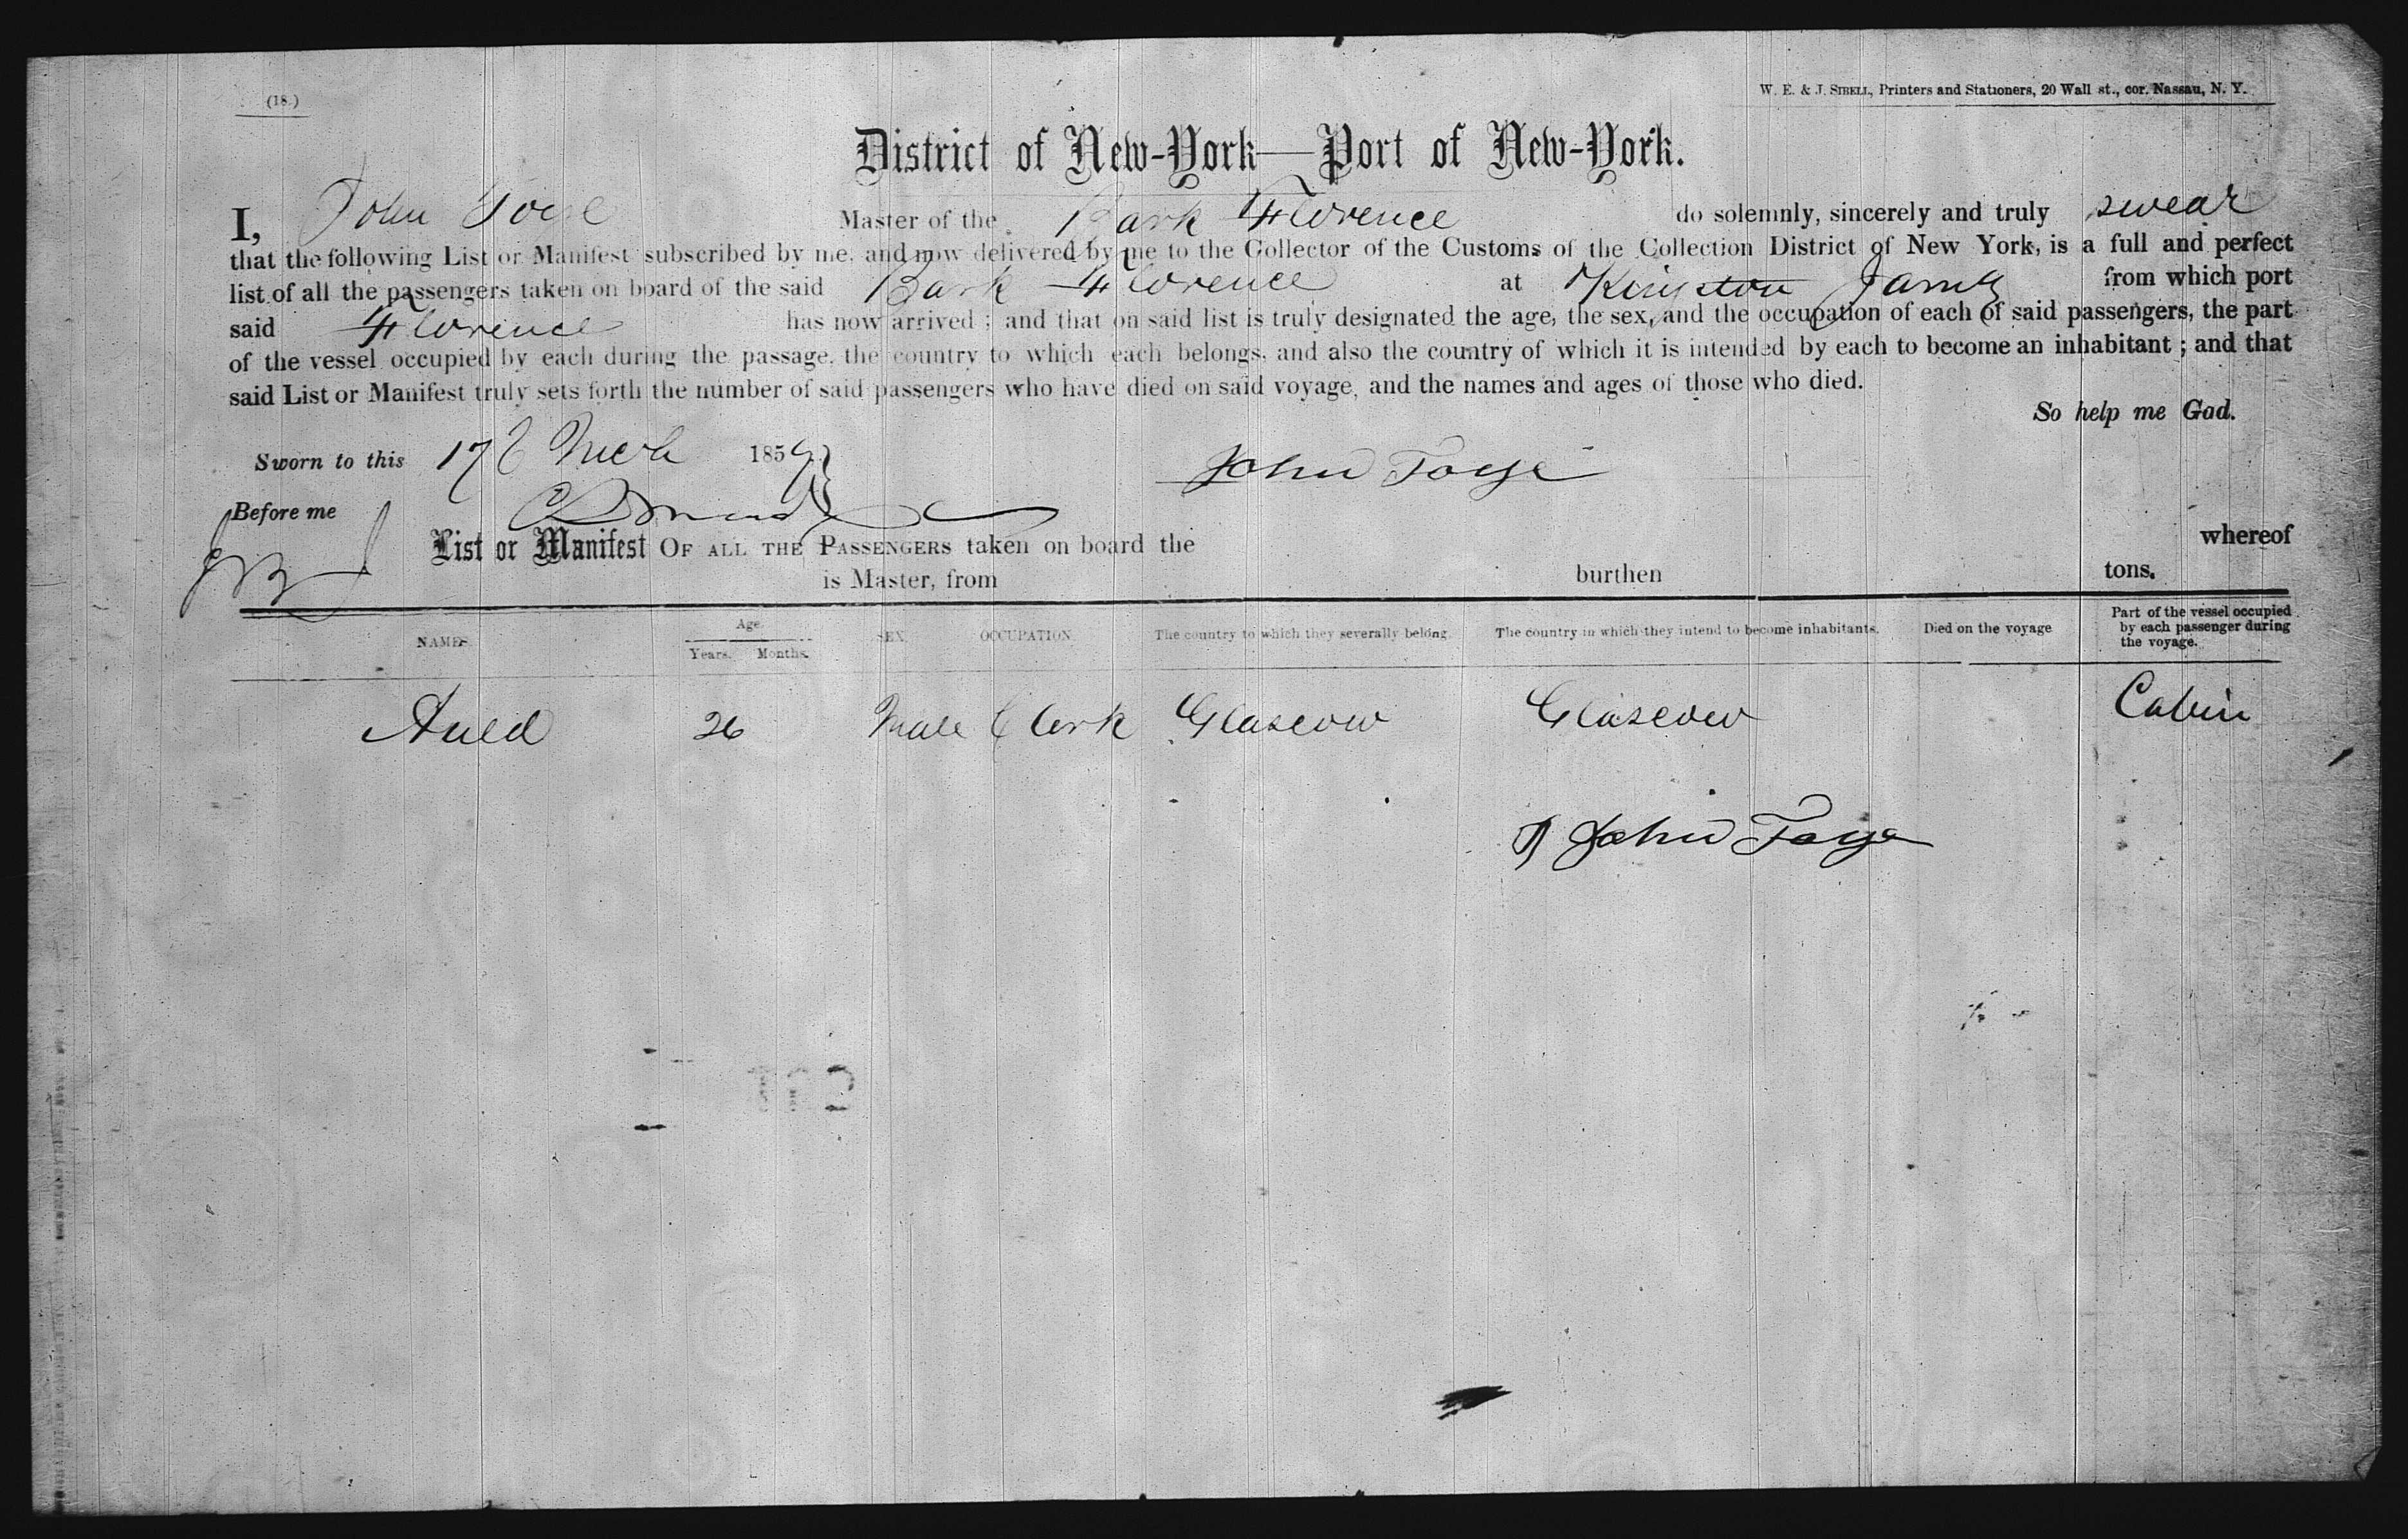 (18.)
W. E. & J. SIBELL, Printers and Stationers, 20 Wall st., cor. Nassau, N. Y.
District of New-York—Port of New-York.
I, John Toye Master of the Bark Florence do solemnly, sincerely and truly swear
that the following List or Manifest subscribed by me, and now delivered by me to the Collector of the Customs of the Collection District of New York, is a full and perfect
list of all the passengers taken on board of the said Bark Florence at Kingston Jamca from which port
said Florence has now arrived ; and that on said list is truly designated the age, the sex, and the occupation of each of said passengers, the part
of the vessel occupied by each during the passage, the country to which each belongs, and also the country of which it is intended by each to become an inhabitant ; and that
said List or Manifest truly sets forth the number of said passengers who have died on said voyage, and the names and ages of those who died.
So help me God.
Sworn to this 17 Mch 1859
John Toye
Before me
List or Manifest OF ALL THE PASSENGERS taken on board the whereof
is Master, from burthen tons.
NAMES. Age. Years. Months. SEX. OCCUPATION. The country to which they severally belong. The country in which they intend to become inhabitants. Died on the voyage Part of the vessel occupied by each passenger during the voyage.
Auld 26 Male Clerk Glascow Glascow Cabin
John Toye